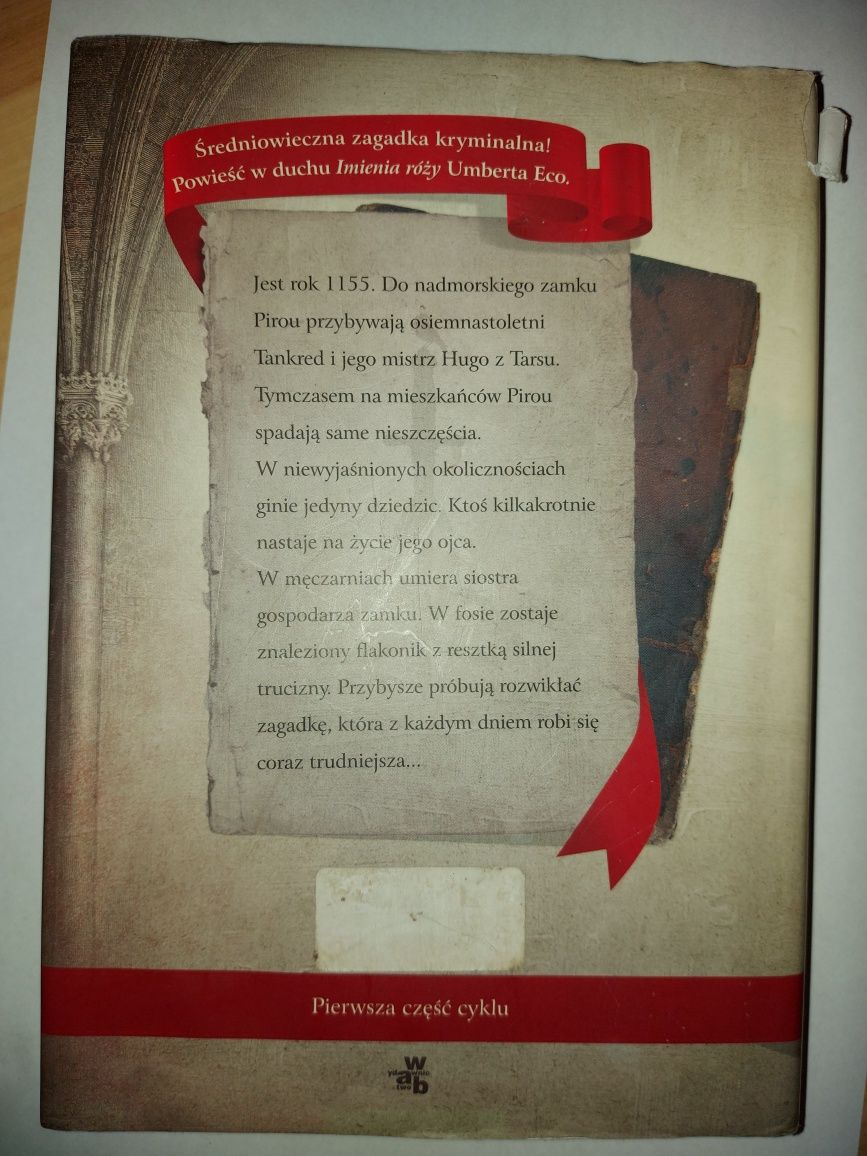 Średniowieczna zagadka kryminalna!
Powieść w duchu Imienia róży Umberta Eco.
Jest rok 1155. Do nadmorskiego zamku
Pirou przybywają osiemnastoletni
Tankred i jego mistrz Hugo z Tarsu.
Tymczasem na mieszkańców Pirou
spadają same nieszczęścia.
W niewyjaśnionych okolicznościach
ginie jedyny dziedzic. Ktoś kilkakrotnie
nastaje na życie jego ojca.
W męczarniach umiera siostra
gospodarza zamku. W fosie zostaje
znaleziony flakonik z resztką silnej
trucizny. Przybysze próbują rozwikłać
zagadkę, która z każdym dniem robi się
coraz trudniejsza...
Pierwsza część cyklu
w
ydawnic
ab
two